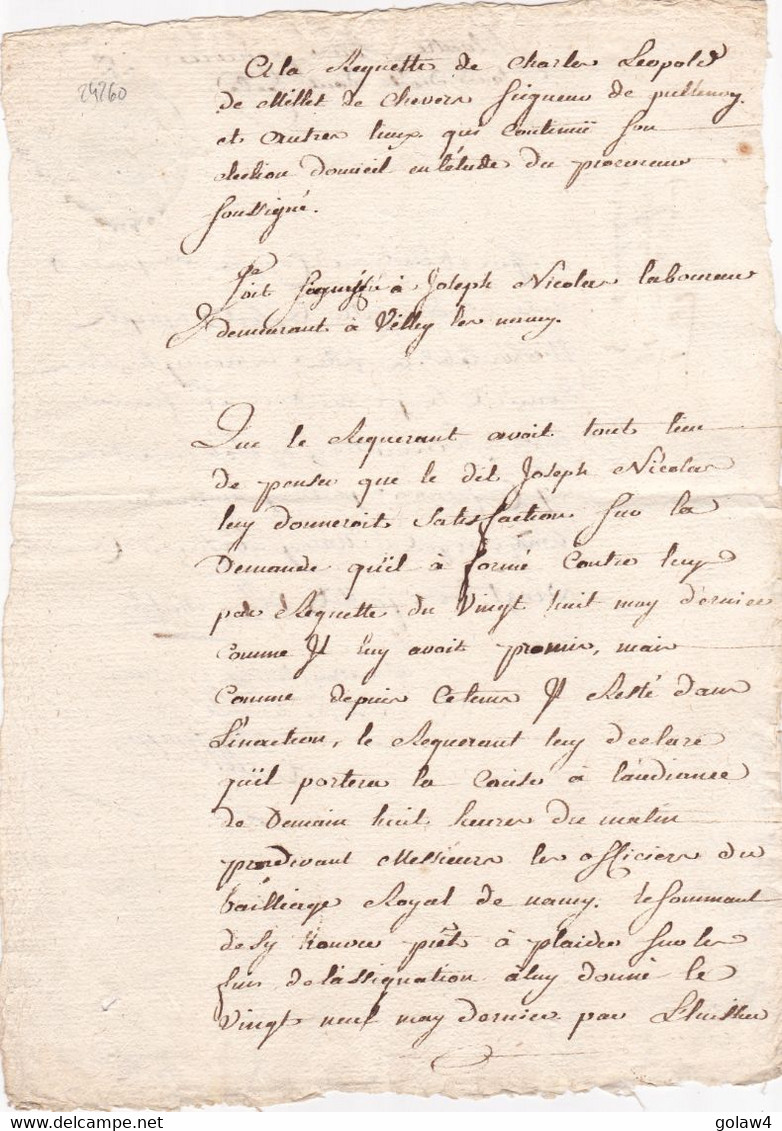 24260
A la Requette de Charles Leopold
de Millet de Chevers seigneur de pullenoy
et autres lieux qui continuë son
election domicil en l'étude du procureur
soussigné.
soit signiffié à Joseph Nicolas laboureur
demeurant à Velley les nancy.
Que le Requerant avoit tout lieu
de penser que le dit Joseph Nicolas
luy donneroit satisfaction sur la
Demande qu'il à formé contre luy
par Requette du Vingt huit may dernier
comme Jl luy avoit promis, mais
comme depuis ce tems Jl Resté dans
L'inaction, le Requerant luy declare
qu'il portera la Cause à l'audiance
de Demain huit heures du matin
pardevant Messieurs les officiers du
bailliage Royal de nancy. le sommant
de s'y trouver prêt à plaider sur les
fins de l'assignation à luy donné le
Vingt neuf may dernier par L'huissier
delcampe.net
golaw4